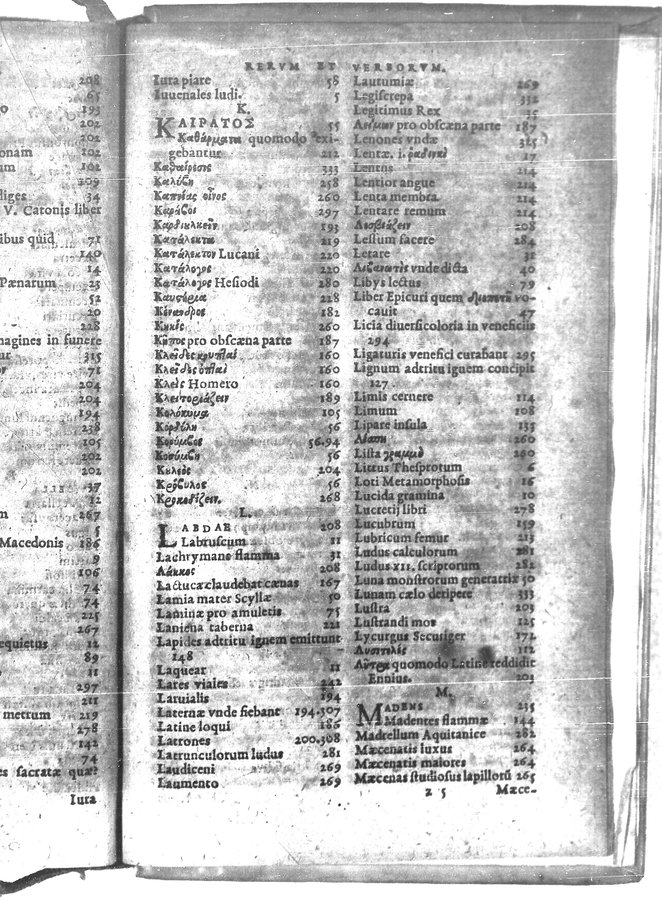 208
65
193
202
202
onam 102
um 102
209
diges 34
V. Catonis liber
ibus quid 71
140
14
Pænarum 23
52
20
228
nagines in funere
ur 315
71
204
204
194
238
105
202
202
37
12
m 267
5
Macedonis 186
9
106
74
74
225
267
equietus 12
89
11
297
211
metrum 219
278
142
74
es sacratæ quæ?
Iura
RERVM ET VERBORVM.
Iura piare 58
Iuuenales ludi. 5
K.
ΚΑΙΡΑΤΟΣ 55
Καθάρματα quomodo exi-
gebantur 212
Καθαίρεσις 333
Καλύβη 258
Καπνίας οἶνος 260
Κάραβος 297
193
Κατάλεκτα 219
Κατάλεκτον Lucani 220
Κατάλογος 220
Κατάλογος Hesiodi 280
228
182
260
Κῆπος pro obscæna parte 187
Κλεῖδες κρυπταὶ 160
Κλεῖδες ὁπλαὶ 160
Κλεὶς Homero 160
Κλειτοριάζειν 189
Κολόκυμα 105
Κορδύλη 56
Κορύμβος 56.94
Κοσύμβη 56
Κυλεὸς 204
Κρώβυλος 56
Κροκοδίζειν. 268
L.
LABDAE 208
Labruscum 11
Lachrymans flamma 31
Λάκκος 208
Lactuca claudebat cænas 167
Lamia mater Scyllæ 50
Laminæ pro amuletis 75
Laniena taberna 221
Lapides adtritu ignem emittunt
148
Laquear 11
Lares viales 242
Laruialis 194
Laternæ vnde fiebant 194.307
Latine loqui 186
Latrones 200.308
Latrunculorum ludus 281
Laudiceni 269
Laumento 269
Lautumiæ 269
Legiscrepa 332
Legitimus Rex 35
pro obscæna parte 187
Lenones vndæ 325
Lentæ. i. ῥαδινκὶ 17
Lentus 214
Lentior angue 214
Lenta membra 214
Lentare remum 214
Λεσβιάζειν 208
Lessum facere 284
Letare 31
Λιβανωτὶς vnde dicta 40
Libys lectus 79
Liber Epicuri quem vo-
cauit 47
Licia diuersicoloria in veneficiis
294
Ligaturis venefici curabant 295
Lignum adtritu ignem concipit
127
Limis cernere 114
Limum 108
Lipare insula 135
260
Lista γραμμὸ 260
Littus Thesprotum 6
Loti Metamorphosis 16
Lucida gramina 10
Lucretij libri 278
Lucubrum 159
Lubricum femur 213
Ludus calculorum 281
Ludus XII. scriptorum 282
Luna monstrorum generatrix 50
Lunam cælo deripere 333
Lustra 203
Lustrandi mos 125
Lycurgus Securiger 172
Λυσιτελὲς 112
quomodo Latine reddidit
Ennius. 203
M.
MADENS 235
Madentes flammæ 144
Madrellum Aquitanice 282
Mæcenatis luxus 264
Mæcenatis maiores 264
Mæcenas studiosus lapillorū 265
2 5 Mæce-